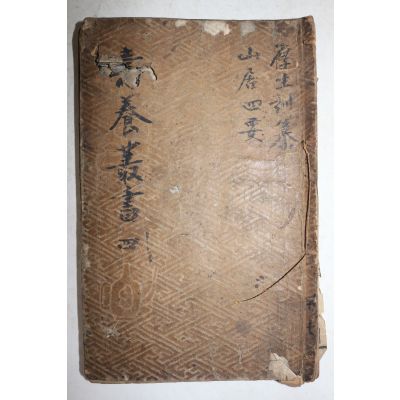 厚生訓纂
山居四要
壽養叢書 四